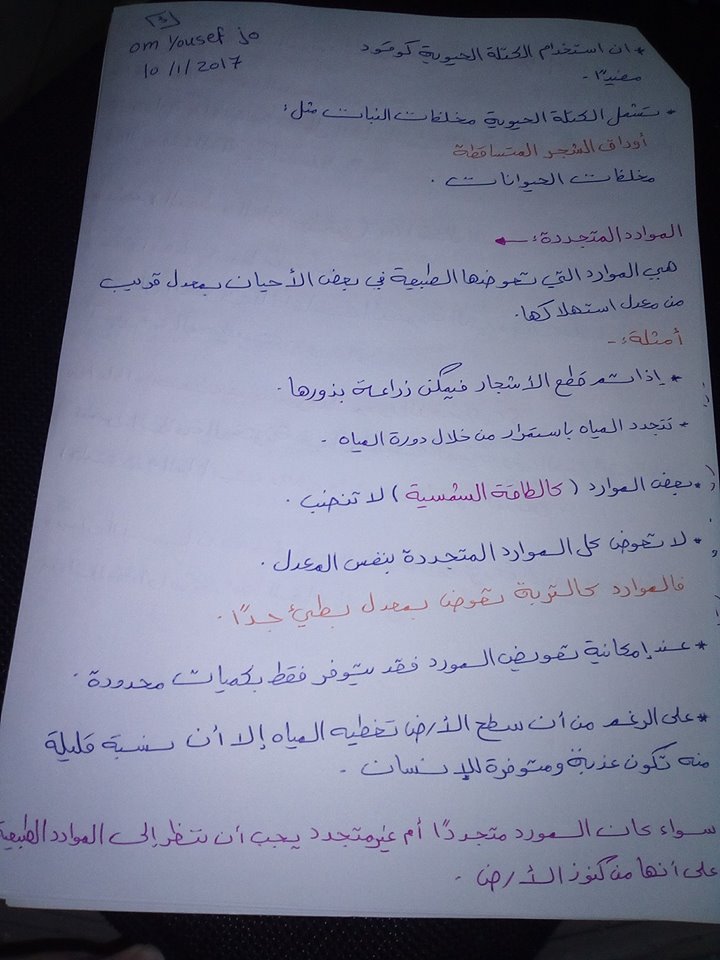 3
om Yousef jo
10/1/2017
* ان استخدام الكتلة الحيوية كوقود
مفيدًا.
* تشمل الكتلة الحيوية مخلفات النبات مثل:
أوراق الشجر المتساقطة
مخلفات الحيوانات.
الموارد المتجددة:
هي الموارد التي تعوضها الطبيعة في بعض الأحيان بمعدل قريب
من معدل استهلاكها.
أمثلة:-
* إذا تم قطع الأشجار فيمكن زراعة بذورها.
* تتجدد المياه باستمرار من خلال دورة المياه.
* بعض الموارد (كالطاقة الشمسية) لا تنضب.
* لا تعوض كل الموارد المتجددة بنفس المعدل.
فالموارد كالتربة تعوض بمعدل بطيء جدًا.
* عند إمكانية تعويض المورد فقد يتوفر فقط بكميات محدودة.
* على الرغم من أن سطح الأرض تغطيه المياه إلا أن نسبة قليلة
منه تكون عذبة ومتوفرة للإنسان.
سواء كان المورد متجددًا أم غير متجدد يجب أن ننظر إلى الموارد الطبيعية
على أنها من كنوز الأرض.